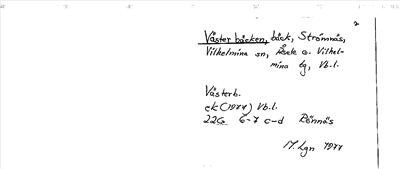 Västerbäcken, bäck, Strömnäs,
Vilhelmina sn, Åsele o. Vilhel-
mina tg, Vb.l.
Västerb.
ek (1971) Vb.l.
22G 6-7 c-d Rönnäs
M. Lgn 1977